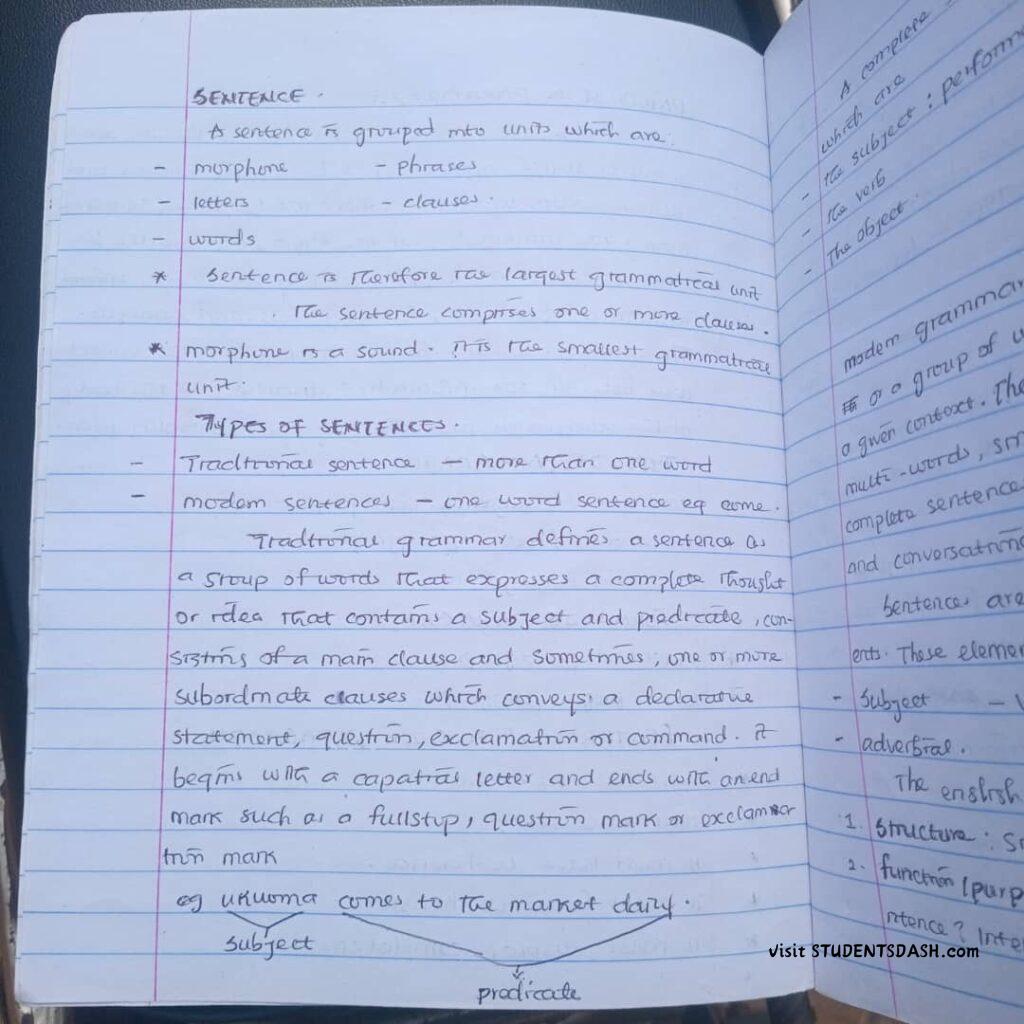 SENTENCE.
A sentence is grouped into units which are.
- morphone - phrases
- letters - clauses.
- words
* Sentence is therefore the largest grammatical unit
. The sentence comprises one or more clauses.
* morphone is a sound. It is the smallest grammatical
unit.
Types OF SENTENCES.
- Traditional sentence - more than one word
- modern sentences - one word sentence eg come.
Traditional grammar defines a sentence as
a group of words that expresses a complete thought
or idea that contains a subject and predicate, con-
sisting of a main clause and sometimes, one or more
subordinate clauses which conveys a declarative
statement, question, exclamation or command. it
begins with a capatial letter and ends with an end
mark such as a fullstop, question mark or exclama
tion mark
eg ukuoma comes to the market daily.
subject
predicate
A complete
which are
- the subject : perform
- the verb
- The object.
modern grammar
or a group of
a given context. The
multi-words, sm
complete sentence
and conversation
Sentences are
ents. These elemen
- Subject -
- adverbial.
The english
1. Structure : S
2. function (purp
ntence? Inte
visit STUDENTSDASH.com